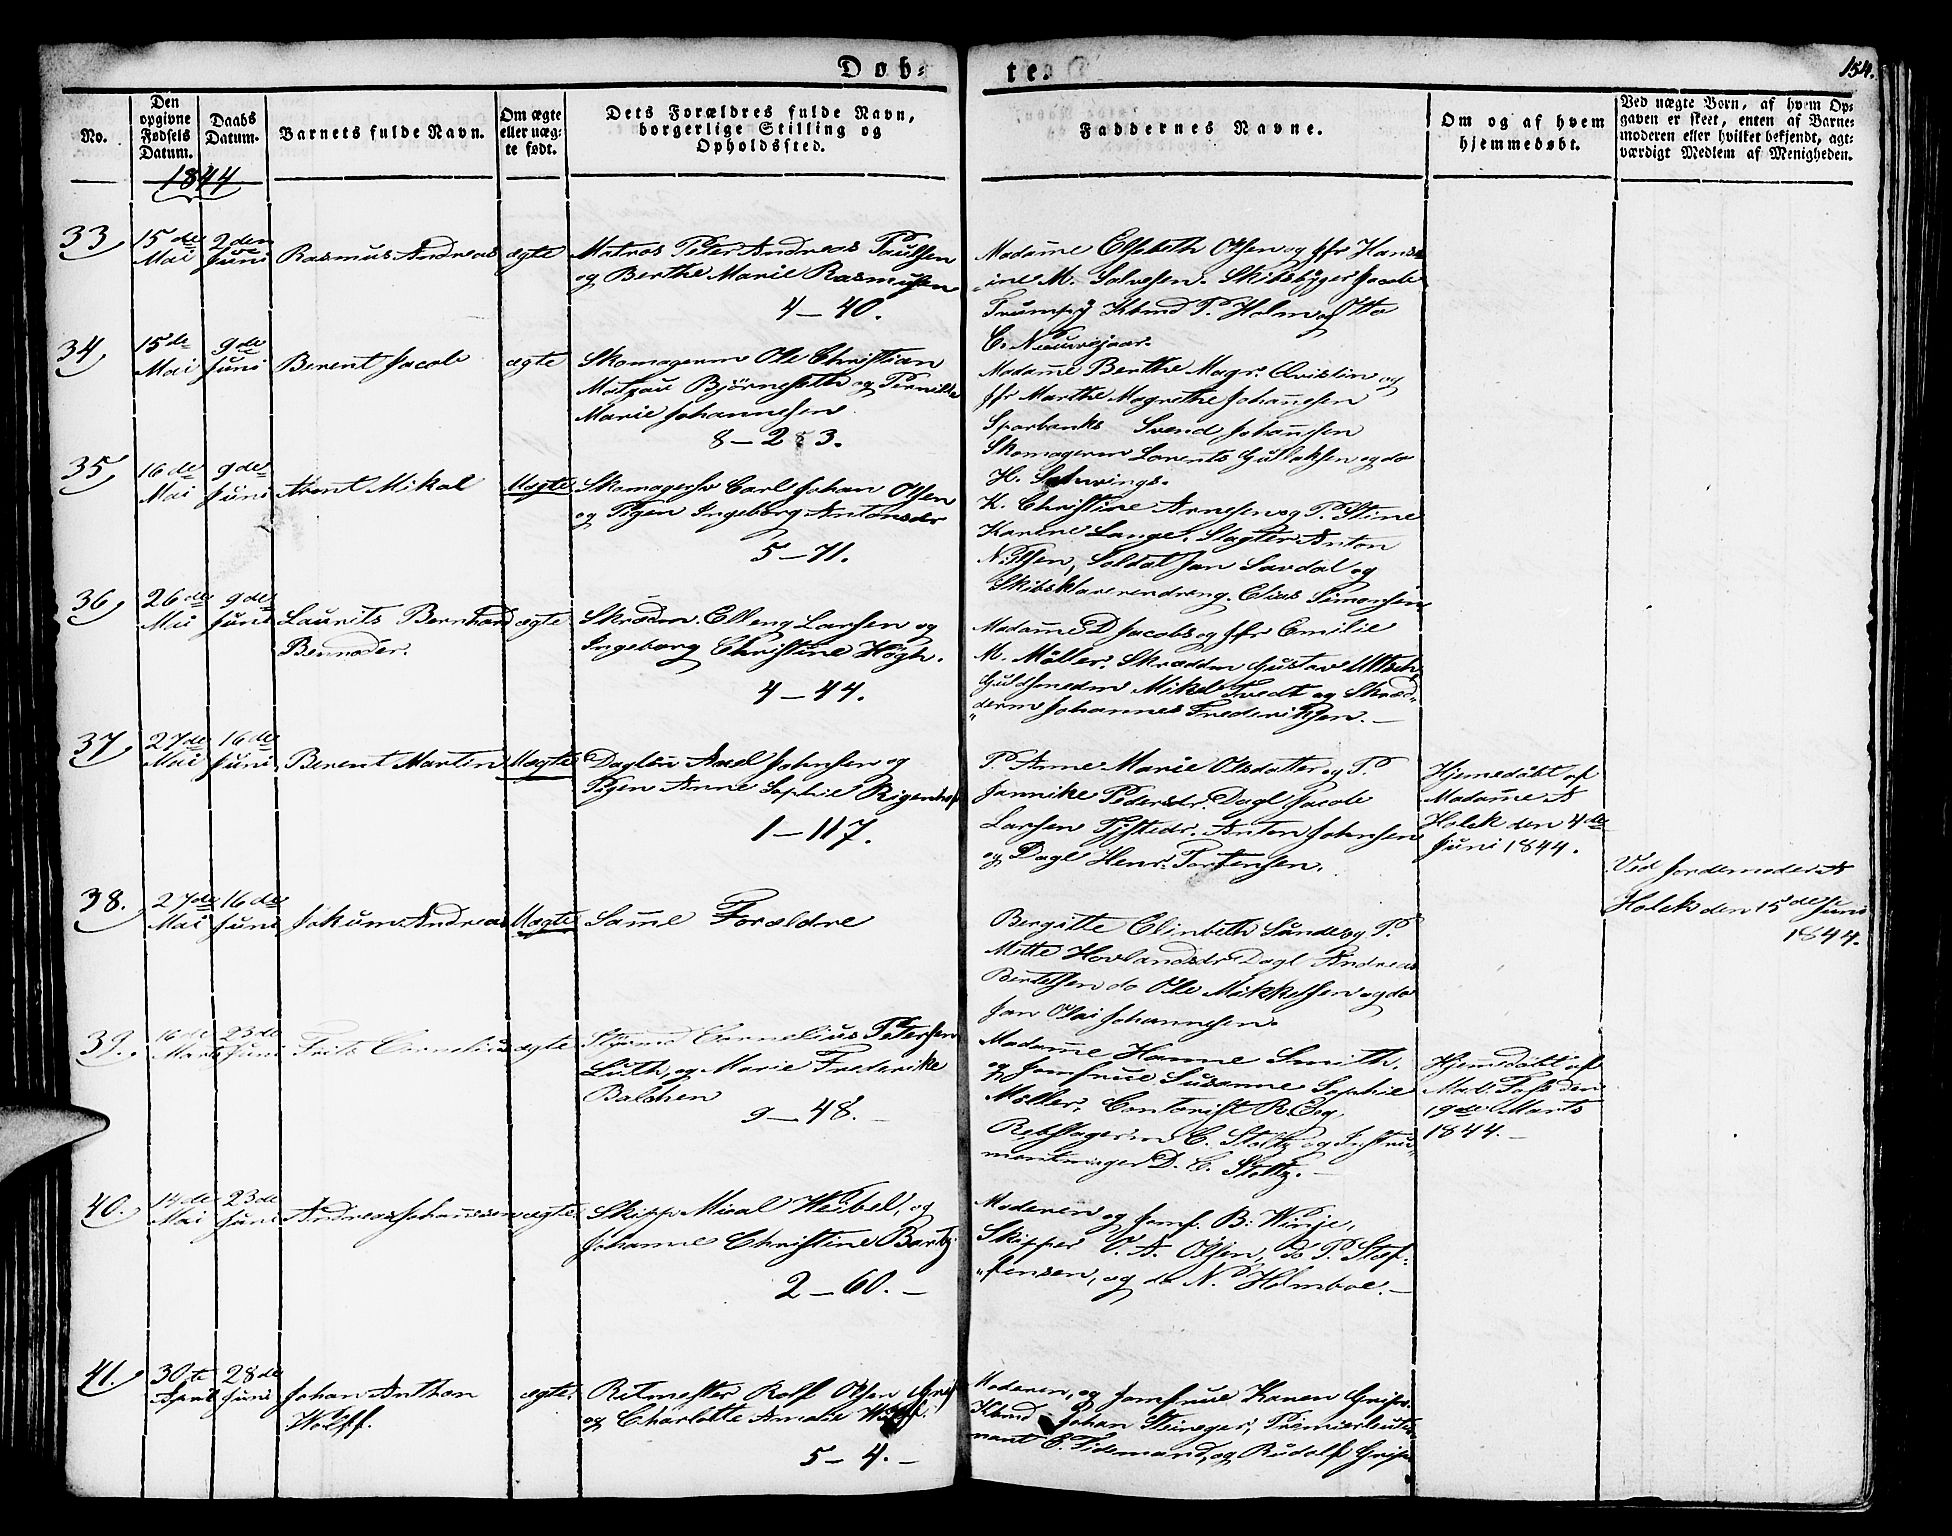 Døb-
te.
154.
No.
Den opgivne Fødsels Datum.
Daabs Datum.
Barnets fulde Navn.
Om ægte eller uæg-te født.
Dets Forældres fulde Navn, borgerlige Stilling og Opholdssted.
Faddernes Navne.
Om og af hvem hjemmedøbt.
Ved uægte Børn, af hvem Op-
gaven er skeet, enten af Barne-
moderen eller hvilket bekjendt, agt-
værdigt Medlem af Menigheden.
1844
33, 15de Mai 2den Juni Rasmus Andreas ægte
Matros Peter Andreas Paulsen
og Berthe Marie Rasmussen
4-40.
Madame Elsebeth Olsen og Jfr Hans
ine M. Salvesen. Skibsbygger Jacob
Trumpy Kbmd P. Holm og Otto
C. Nieuwejaar.
34, 15de Mai 9de Juni Berent Jacob ægte
Skomagerm Ole Christian
Mølgau Björneseth og Pernille
Marie Johannesen
8-283.
Madame Berthe Magr. Qvislin og
Jfr Marthe Magrethe Johannesen
Sparbanks Svend Johannsen
Skomagerm Lorents Gullaksen og do
H.
35, 16de Mai 9de Juni Arent Mikal Uægte
Skomagersv Carl Johan Olsen
og Pigen Ingeborg Antonsdr
5-71.
K. Christine Arnesen og P. Stine
Karine Lange. Slagter Anton
Nilssen, Soldat Jan Savdal og
Skibsklarerendreng. Elias Simonsen
36, 26de Mai 9de Juni Laurits Bernhard ægte
Bennoder.
Skrædm. Elleng Larsen og
Ingeborg Christine Høgh.
4-44.
Madame D Jacobs og Jfr Emilie
M. Møller. Skrædderm Gustav
Guldsmedm Mikel Tvedt og Skræd-
derm Johannes Frederiksen.
37, 27de Mai 16de Juni Berent Martin Uægte
Dagløn Axel Johnsen og
Pigen Anne Sophie
1-117.
P. Anne Marie Olsdatter og P.
Jannike Pedersdr. Dagl Jacob
Larsen Tjstedr. Anton Johnsen
og Dagl Henr. Torstensen.
Hjemedöbt af
Madame A
Holck den 4de
Juni 1844.
38. 27de Mai 16de Juni Jokum Andreas Uægte
Samme Forældre
Bergitte Elisbeth Sunde og P.
Mette Hovlandsdr Dagl Andreas
Bertelsen do Ole Mikkelsen og do
Jan Olai Johannesen.
Ved Jordemoder A
Holck den 15de Juni
1844.
39. 16de Marts 23de Juni Frits Cornelius ægte
Styrmd Cornelius Petersen
Lüth, og Marie Frederike
Balchen
9-48.
Madame Hanne Smith.
og Jomfrue Susanne Sophie
Møller. Contorist R. Eeg,
Rebslagerm C. Stoltz og Instru-
mentmager D. C. Stoltz.
Hjemmedöbt af
Mad. den
19de Marts
1844.
40. 14de Mai 23de Juni Andreas Johannsen ægte
Skipp Micel Weibel, og
Johanne Christine
2-60.
Moderen og Jomf. B. Winje,
Skipper C. A. Olsen, do P. Stef-
fensen, og do N. Holmboe.
41. 30te April 28de Juni Johan Anthon ægte.
Wolff.
Ritmester Rolf Olsen
og Charlotte Amalie
5-4.
Moderen, og Jomfrue Karen Grips.
Kbmd Johan Steneger, Premierleute-
nant E. Tidemand, og Rudolf